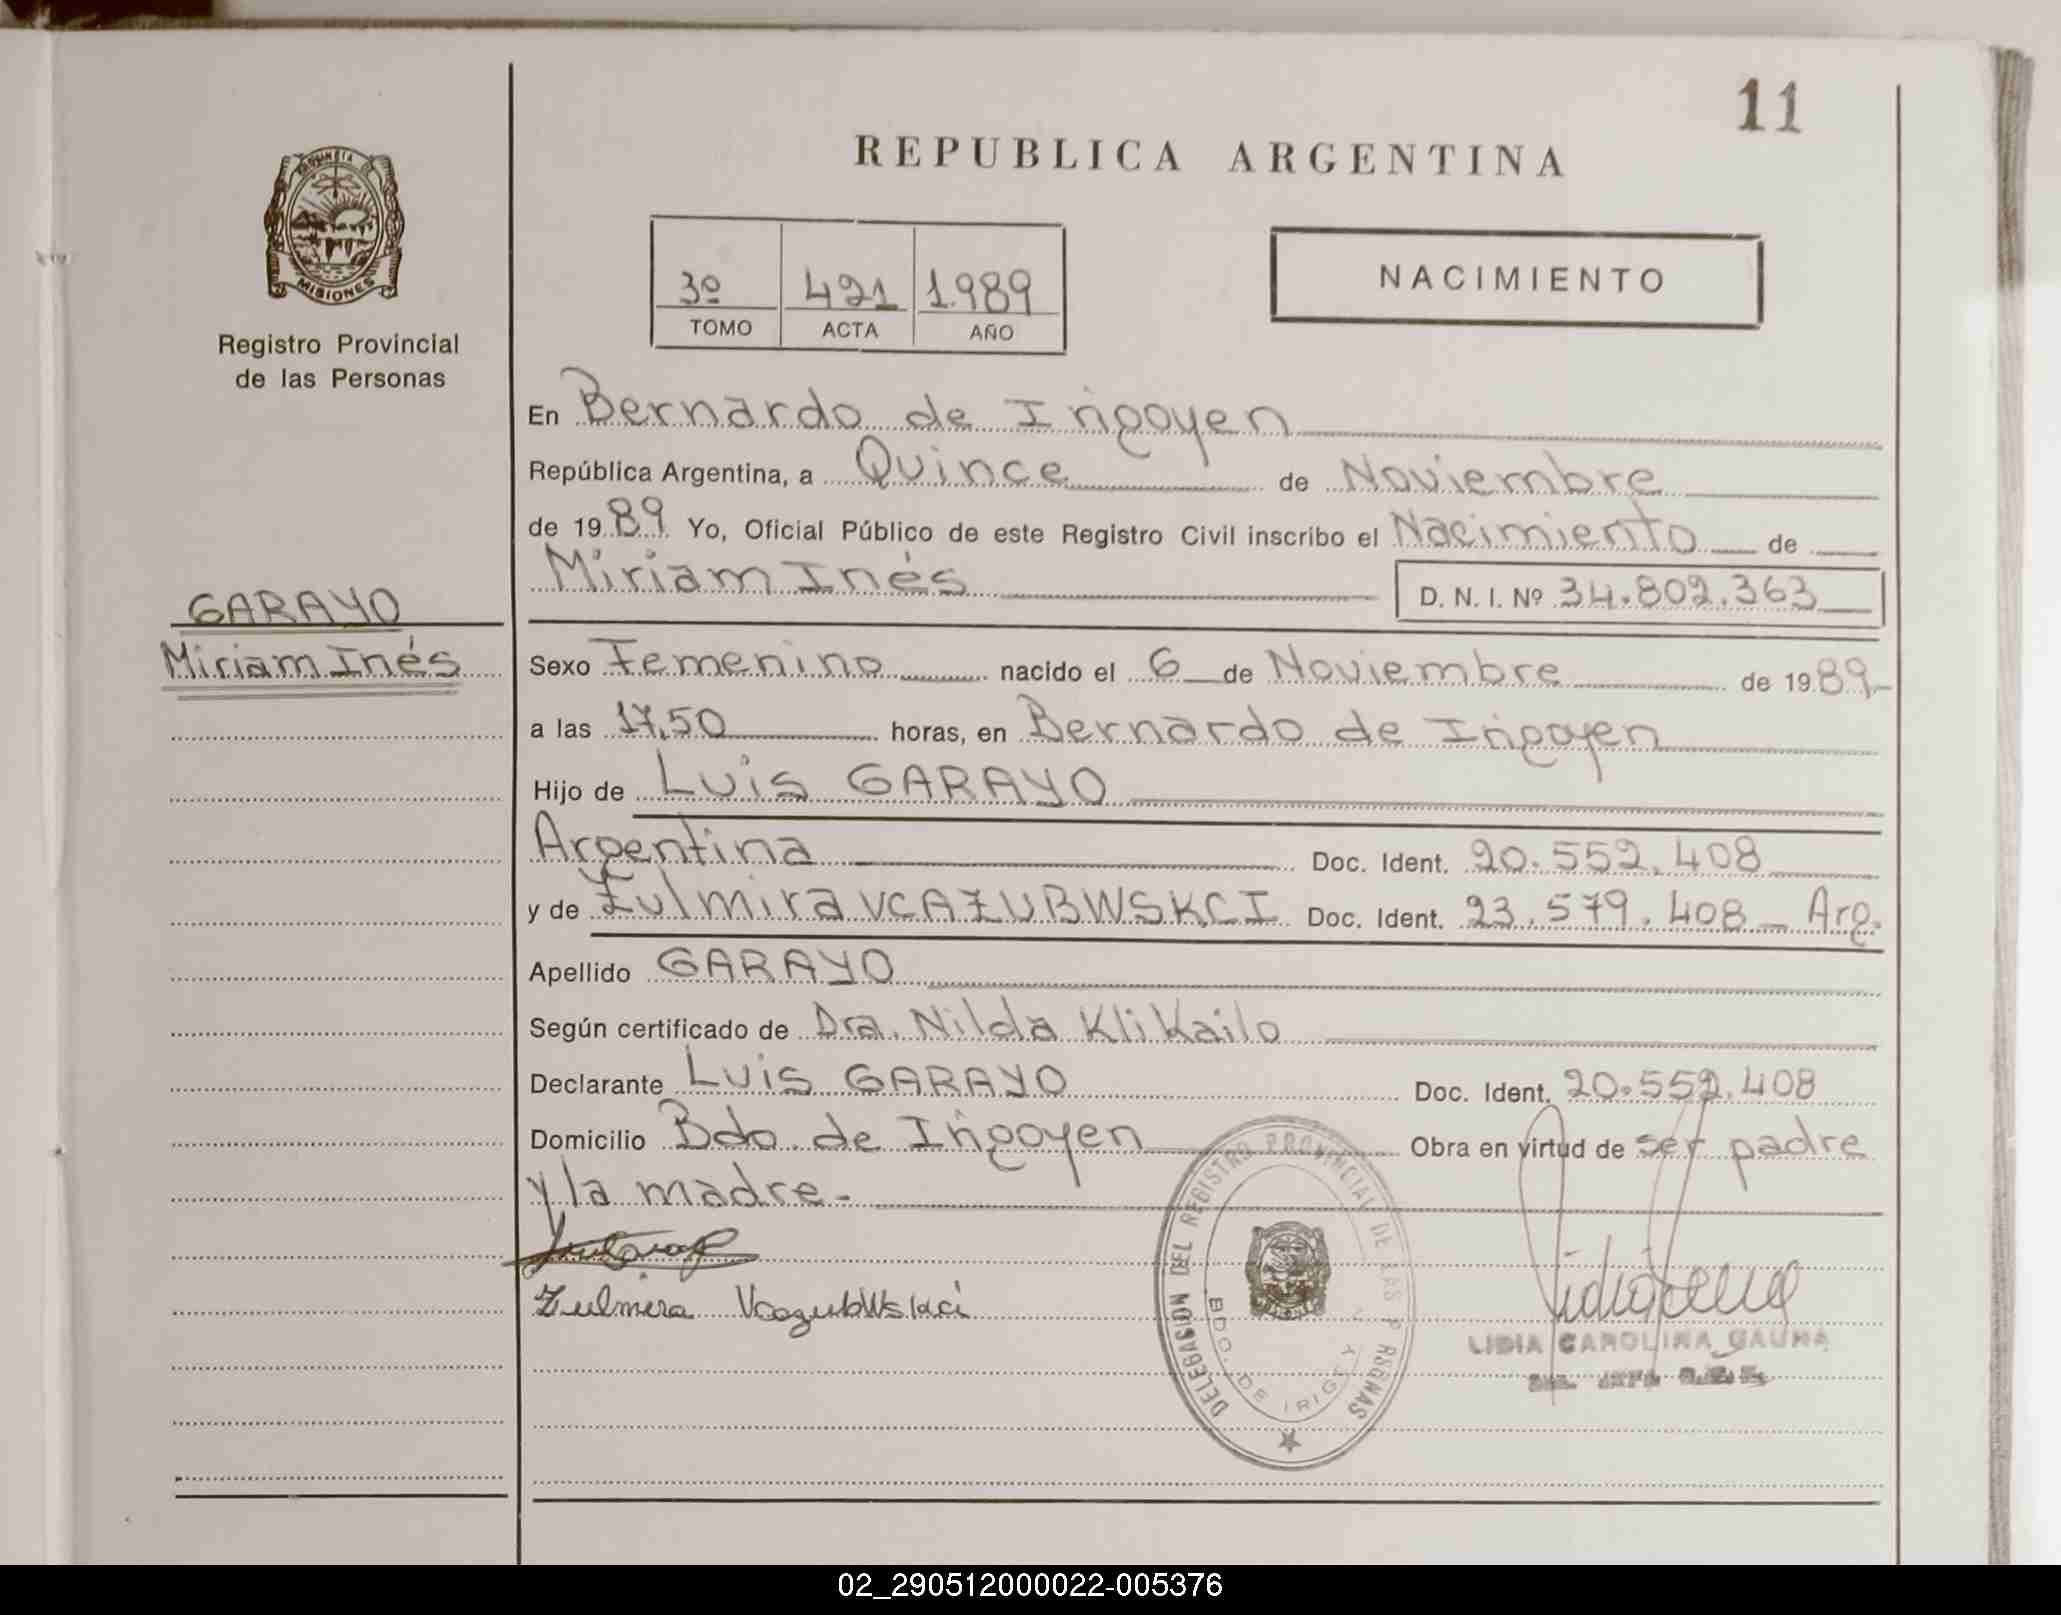 11
REPUBLICA ARGENTINA
PROVINCIA DE
MISIONES
Registro Provincial
de las Personas
3º 421 1.989
TOMO ACTA AÑO
NACIMIENTO
En Bernardo de Irigoyen
República Argentina, a Quince de Noviembre
de 1989 Yo, Oficial Público de este Registro Civil inscribo el Nacimiento de
Miriam Inés D. N. I. Nº 34.802.363
GARAYO
Miriam Inés
Sexo Femenino nacido el 6 de Noviembre de 1989
a las 17,50 horas, en Bernardo de Irigoyen
Hijo de Luis GARAYO
Argentina Doc. Ident. 20.552.408
y de Zulmira VCAZUBWSKCI Doc. Ident. 23.579.408 - Arg.
Apellido GARAYO
Según certificado de Dra. Nilda Klikailo
Declarante Luis GARAYO Doc. Ident. 20.552.408
Domicilio Bdo. de Irigoyen Obra en virtud de ser padre
y la madre.-
Zulmira VcazubWskci
DELEGASION DEL REGISTRO PROVINCIAL DE LAS P RSONAS
BDO. DE IRIGOY
LIDIA CAROLINA GAUNA
02_290512000022-005376